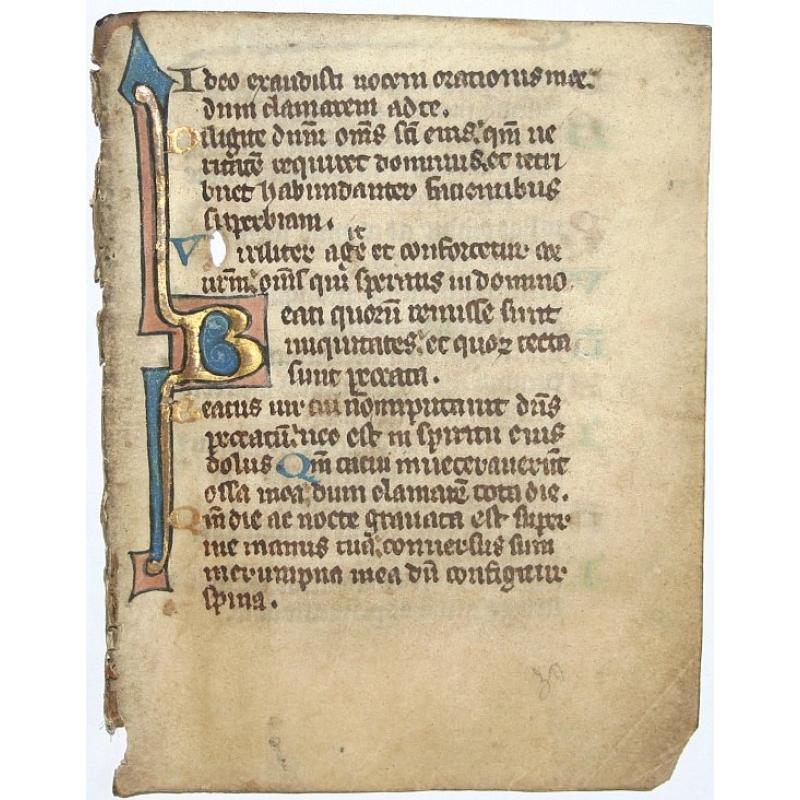 Ideo exaudisti uocem orationis mee.
dum clamarem ad te.
Diligite dum̄ om̄s sc̄i eius. qm̄ ue
ritatē requiret dominus. et retri
buet habundanter facientibus
superbiam.
Viriliter agite et confortetur cor
ur̄m. om̄s qui speratis in domino.
Beati quorū remisse sunt
iniquitates. et quoꝝ tecta
sunt peccata.
Beatus uir cui nō inputauit dn̄s
peccatū. nec est in spiritu eius
dolus Qm̄ tacui inueterauerūt
ossa mea. dum clamarē tota die.
Qm̄ die ac nocte grauata est super
me manus tua. conuersus sum
in erumpna mea dū configitur
spina.